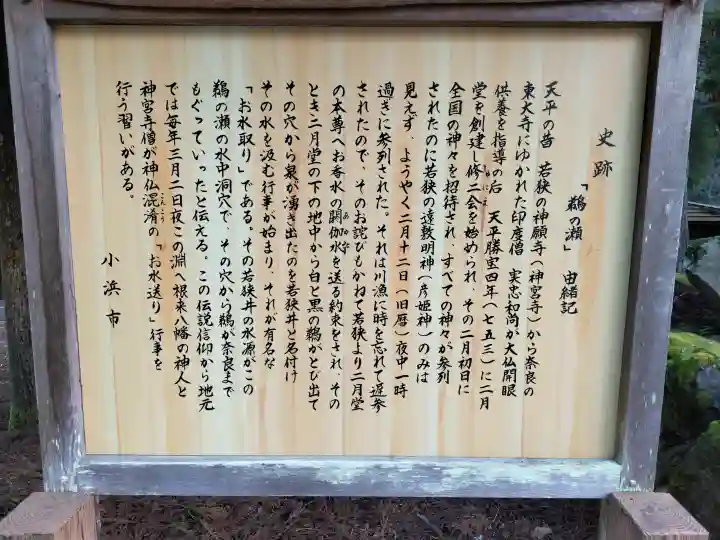 史跡
「鵜の瀬」 由緒記
天平の昔 若狭の神願寺(神宮寺)から奈良の
東大寺にゆかれた印度僧 実忠和尚が大仏開眼
供養を指導の后 天平勝宝四年(七五三)に二月
堂を創建し修二会を始められ、その二月初日に
全国の神々を招待され、すべての神々が参列
されたのに若狭の遠敷明神(彦姫神)のみは
見えず、ようやく二月十二日(旧暦)夜中一時
過ぎに参列された。それは川漁に時を忘れて遅参
されたので、そのお詫びもかねて若狭より二月堂
の本尊へお香水の閼伽水を送る約束をされ、その
とき二月堂の下の地中から白と黒の鵜がとび出て
その穴から泉が湧き出たのを若狭井と名付け
その水を汲む行事が始まり、それが有名な
「お水取り」である。その若狭井の水源がこの
鵜の瀬の水中洞穴で、その穴から鵜が奈良まで
もぐっていったと伝える。この伝説信仰から地元
では毎年三月二日夜この淵へ根来八幡の神人と
神宮寺僧が神仏混淆の「お水送り」行事を
行う習いがある。
小浜市